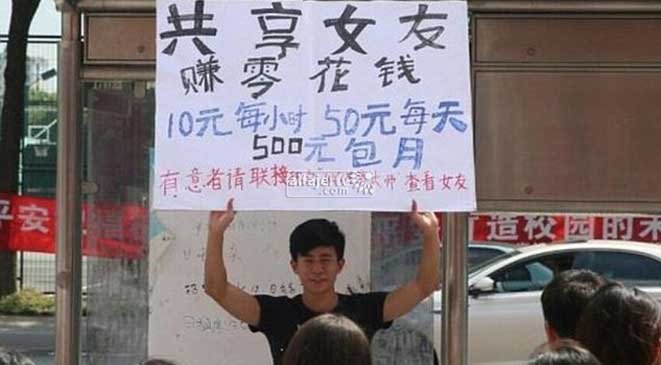 共享女友
赚零花钱
10元每小时 50元每天
500元包月
有意者请联接 师 查看女友
alfajertv
.com
平安
造校园的